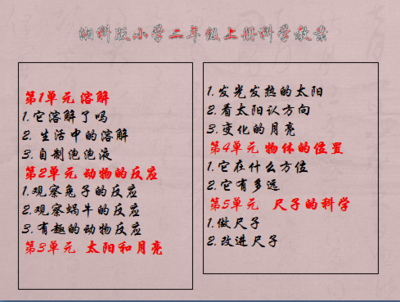 湘科版小学二年级上册科学教案
第1单元 溶解
1.它溶解了吗
2. 生活中的溶解
3.自制泡泡液
第2单元 动物的反应
1.观察兔子的反应
2.观察蜗牛的反应
3.有趣的动物反应
第3单元 太阳和月亮
1.发光发热的太阳
2.看太阳认方向
3.变化的月亮
第4单元 物体的位置
1.它在什么方位
2.它有多远
第5单元 尺子的科学
1.做尺子
2.改进尺子